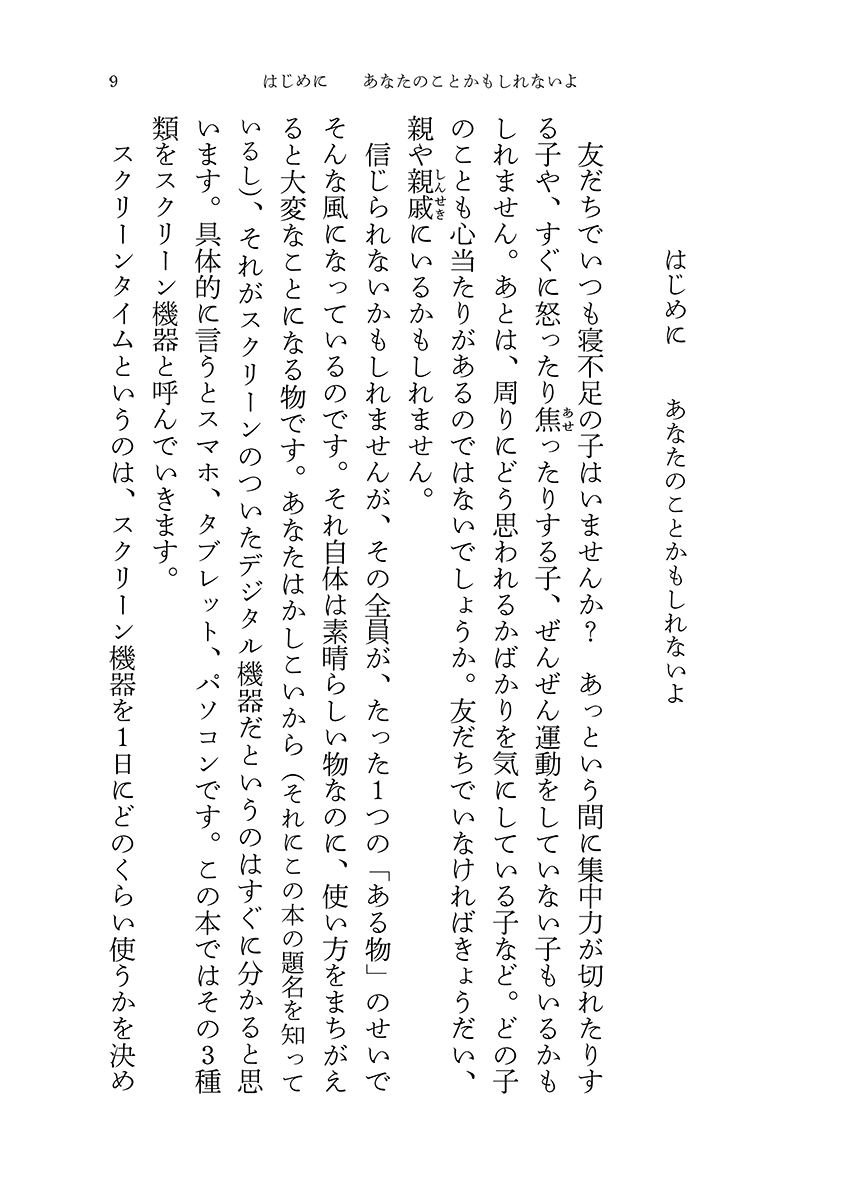 9
はじめに　あなたのことかもしれないよ
はじめに　あなたのことかもしれないよ
友だちでいつも寝不足の子はいませんか？　あっという間に集中力が切れたりす
る子や、すぐに怒ったり焦ったりする子、ぜんぜん運動をしていない子もいるかも
あせ
しれません。あとは、周りにどう思われるかばかりを気にしている子など。どの子
のことも心当たりがあるのではないでしょうか。友だちでいなければきょうだい、
親や親戚にいるかもしれません。
しんせき
信じられないかもしれませんが、その全員が、たった1つの「ある物」のせいで
そんな風になっているのです。それ自体は素晴らしい物なのに、使い方をまちがえ
ると大変なことになる物です。あなたはかしこいから（それにこの本の題名を知って
いるし）、それがスクリーンのついたデジタル機器だというのはすぐに分かると思
います。具体的に言うとスマホ、タブレット、パソコンです。この本ではその3種
類をスクリーン機器と呼んでいきます。
スクリーンタイムというのは、スクリーン機器を1日にどのくらい使うかを決め